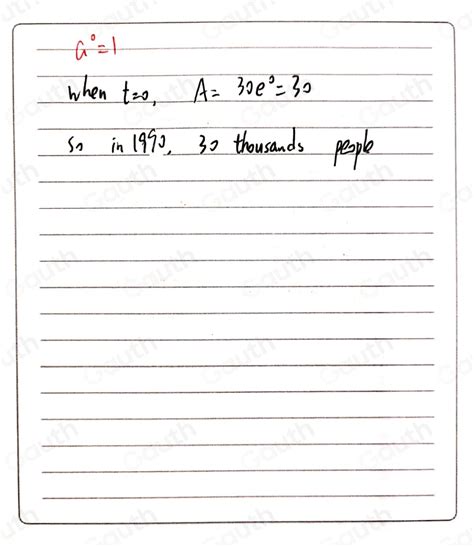 a⁰=1
when t=0, A= 30e⁰=30
so in 1990, 30 thousands people